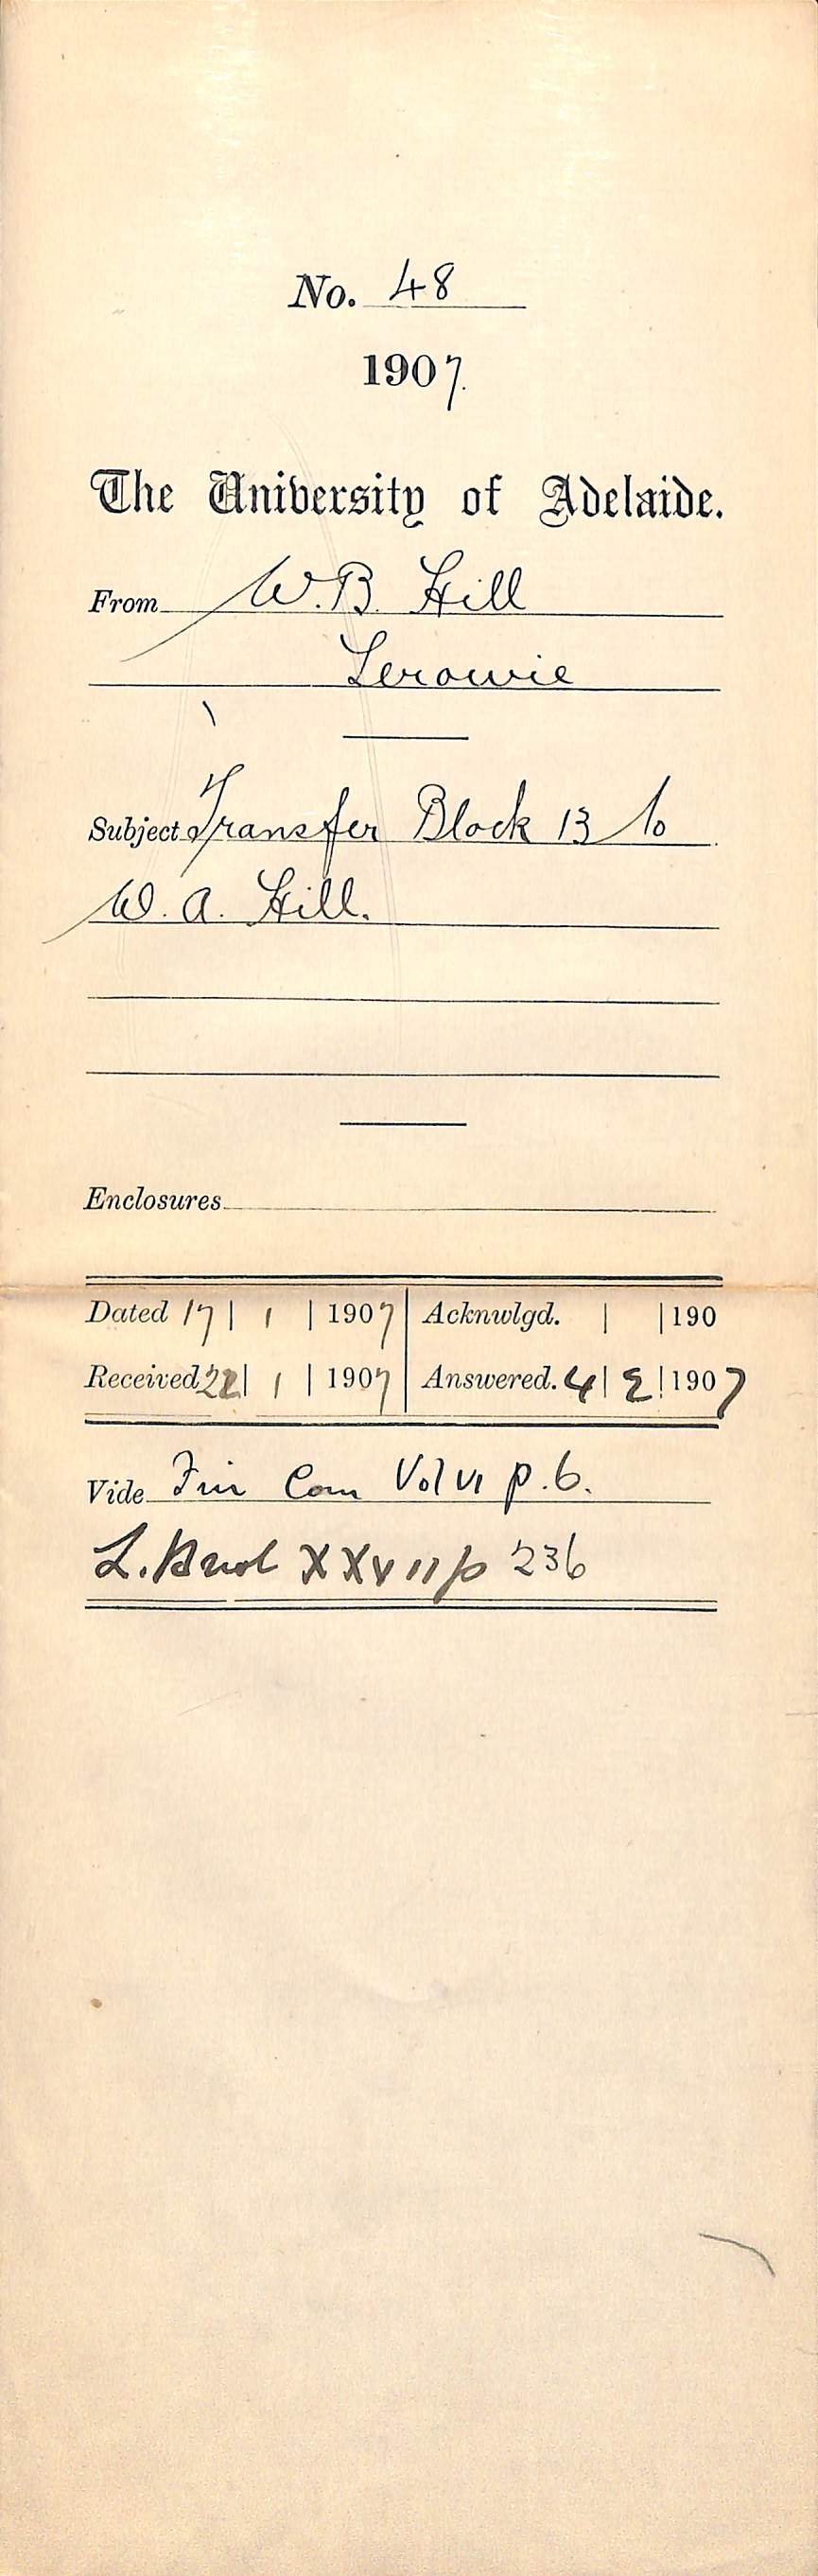 No. 48
1907.
The University of Adelaide.
From W.B. Hill
Terowie
Subject Transfer Block 13 to
W. A. Hill.
Enclosures
Dated 17 | 1 | 1907 Acknwlgd. | | 190
Received 22 | 1 | 1907 Answered. 4 | 2 | 1907
Vide Fin Com Vol VI p. 6.
L. XXVII p 236